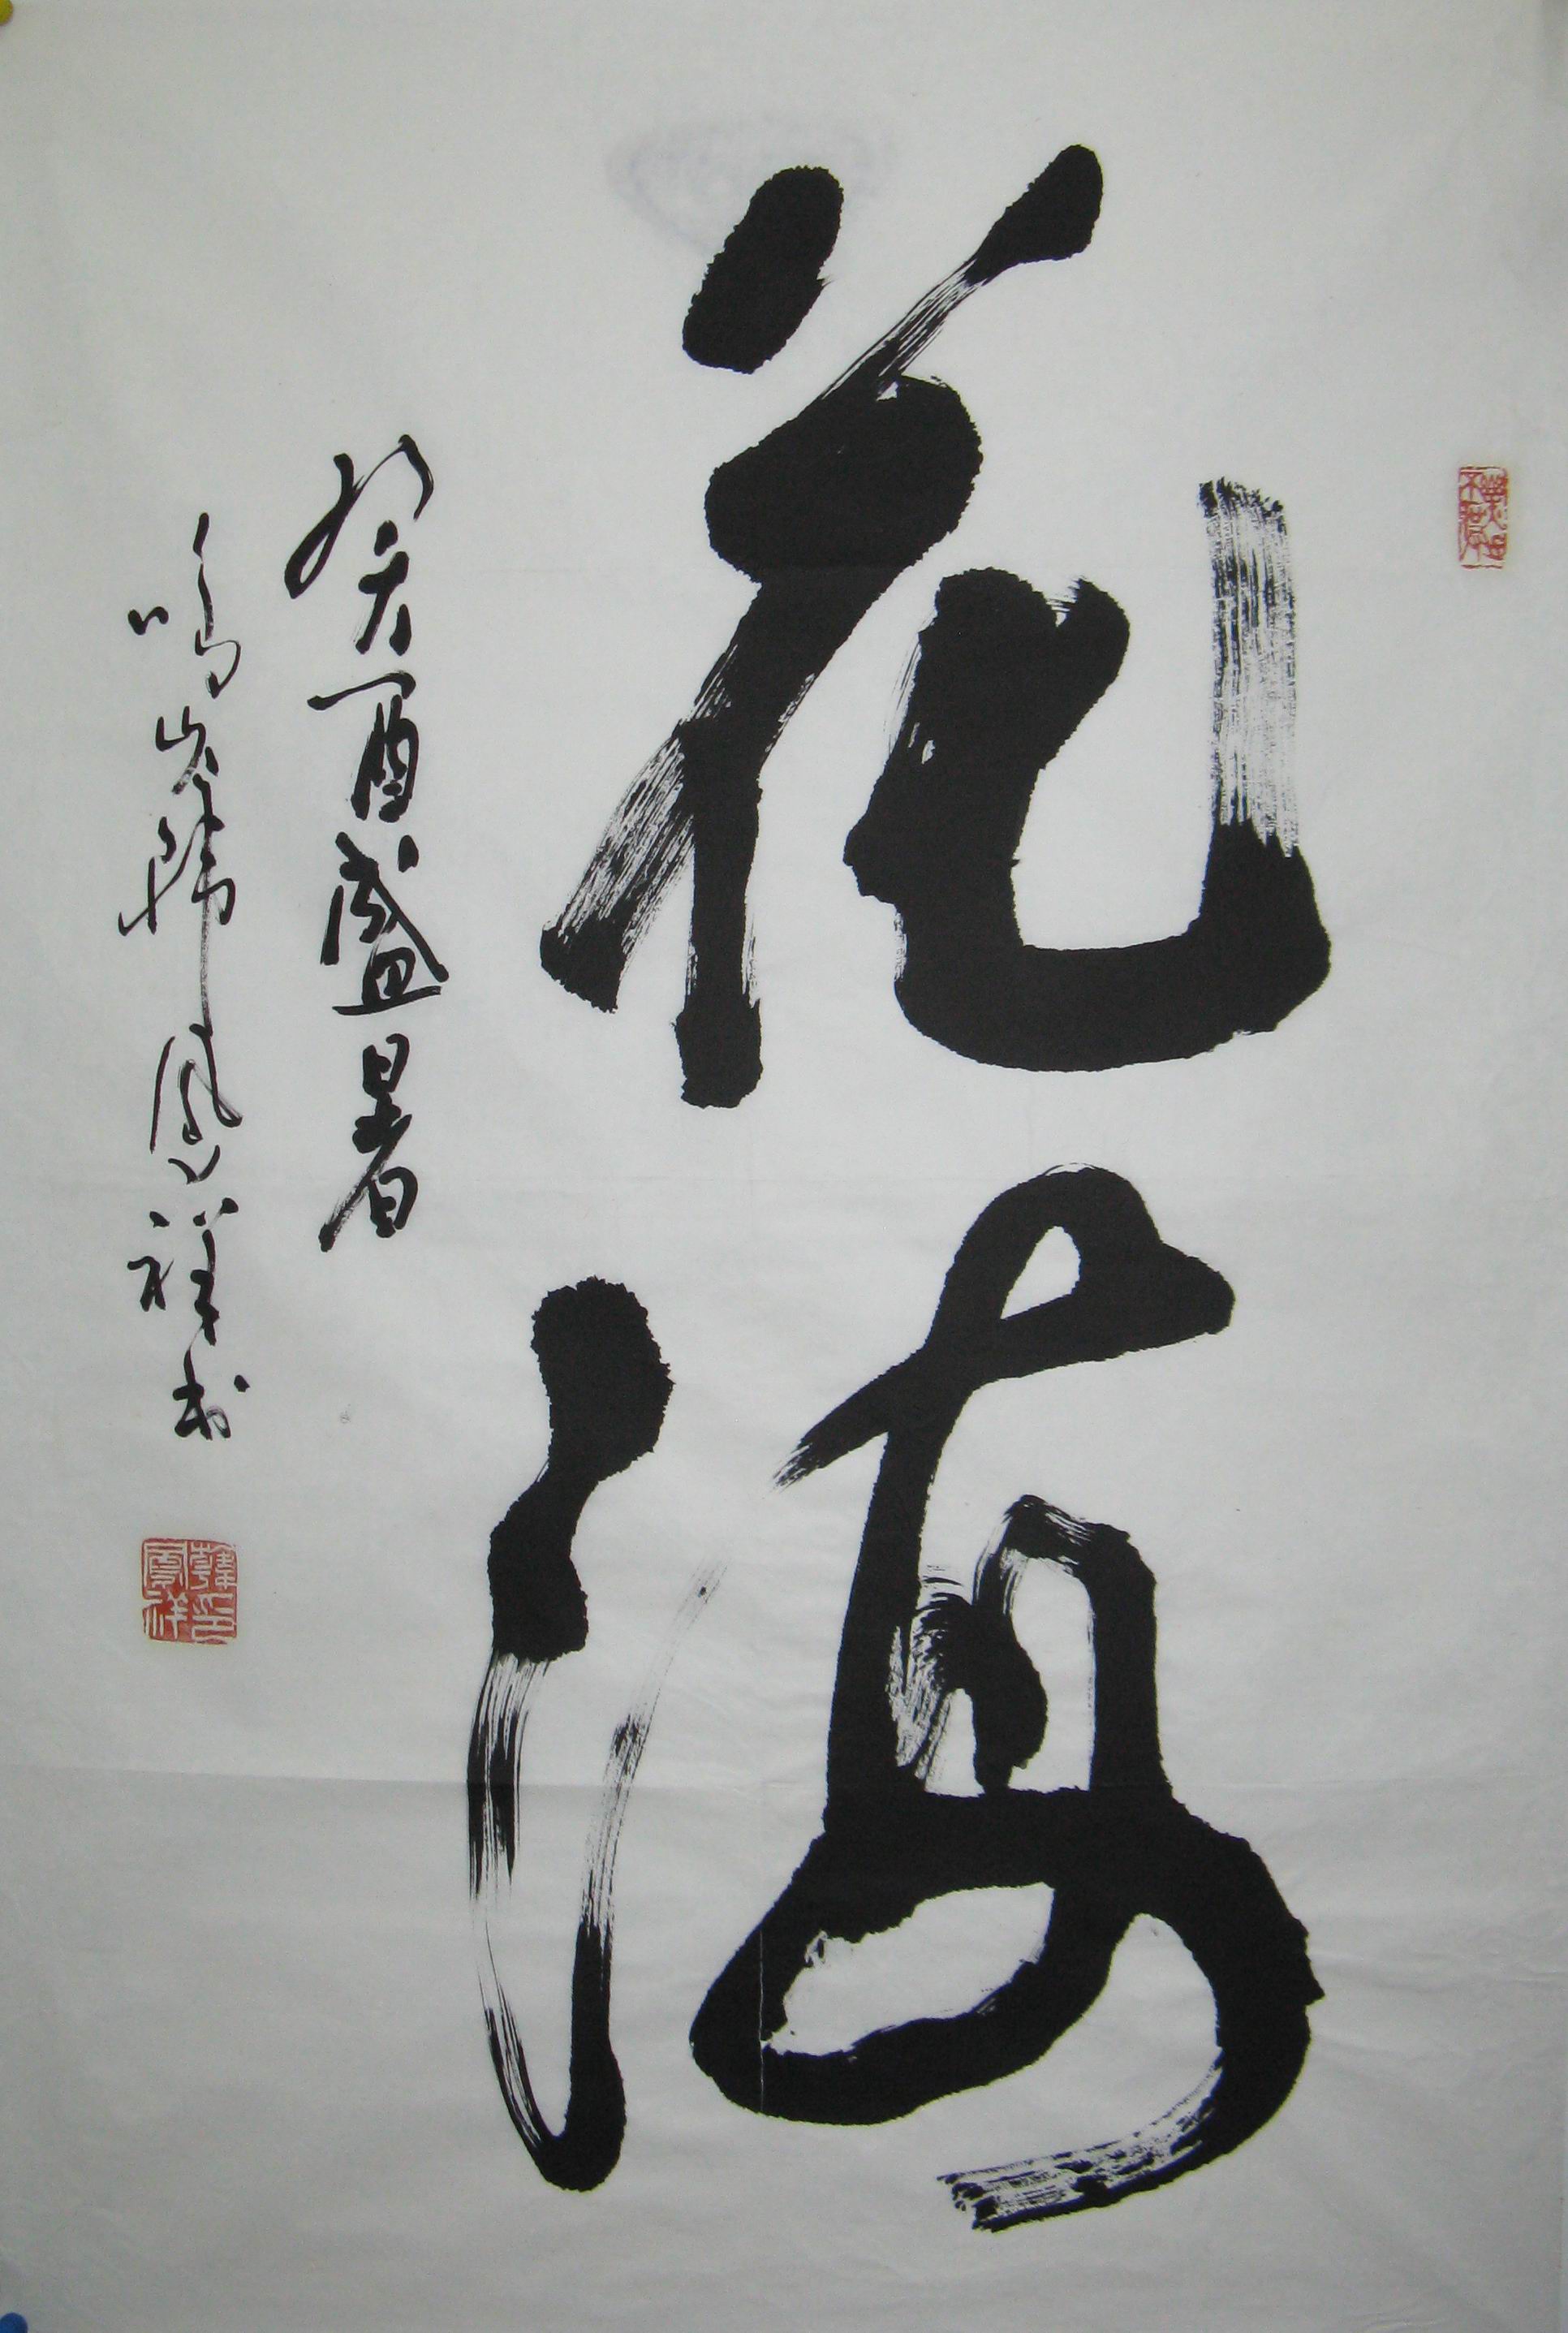 花海
癸酉盛暑
鸣山韩凤祥书
韓印
鳳祥